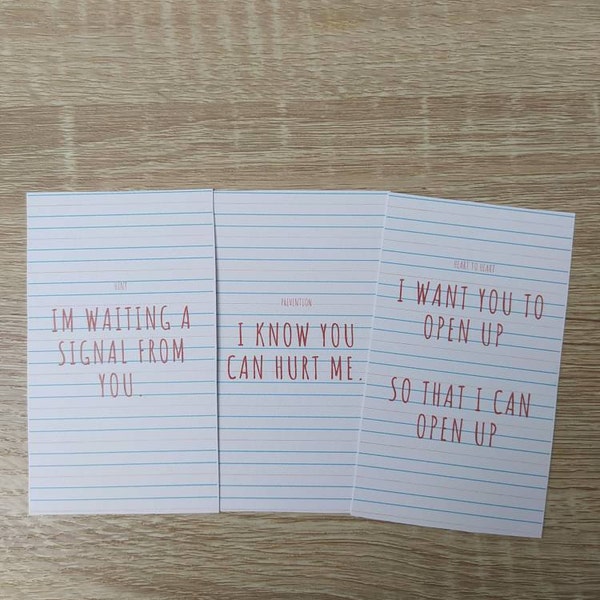 HINT
IM WAITING A
SIGNAL FROM
YOU.
PREVENTION
I KNOW YOU
CAN HURT ME.
HEART TO HEART
I WANT YOU TO
OPEN UP
SO THAT I CAN
OPEN UP